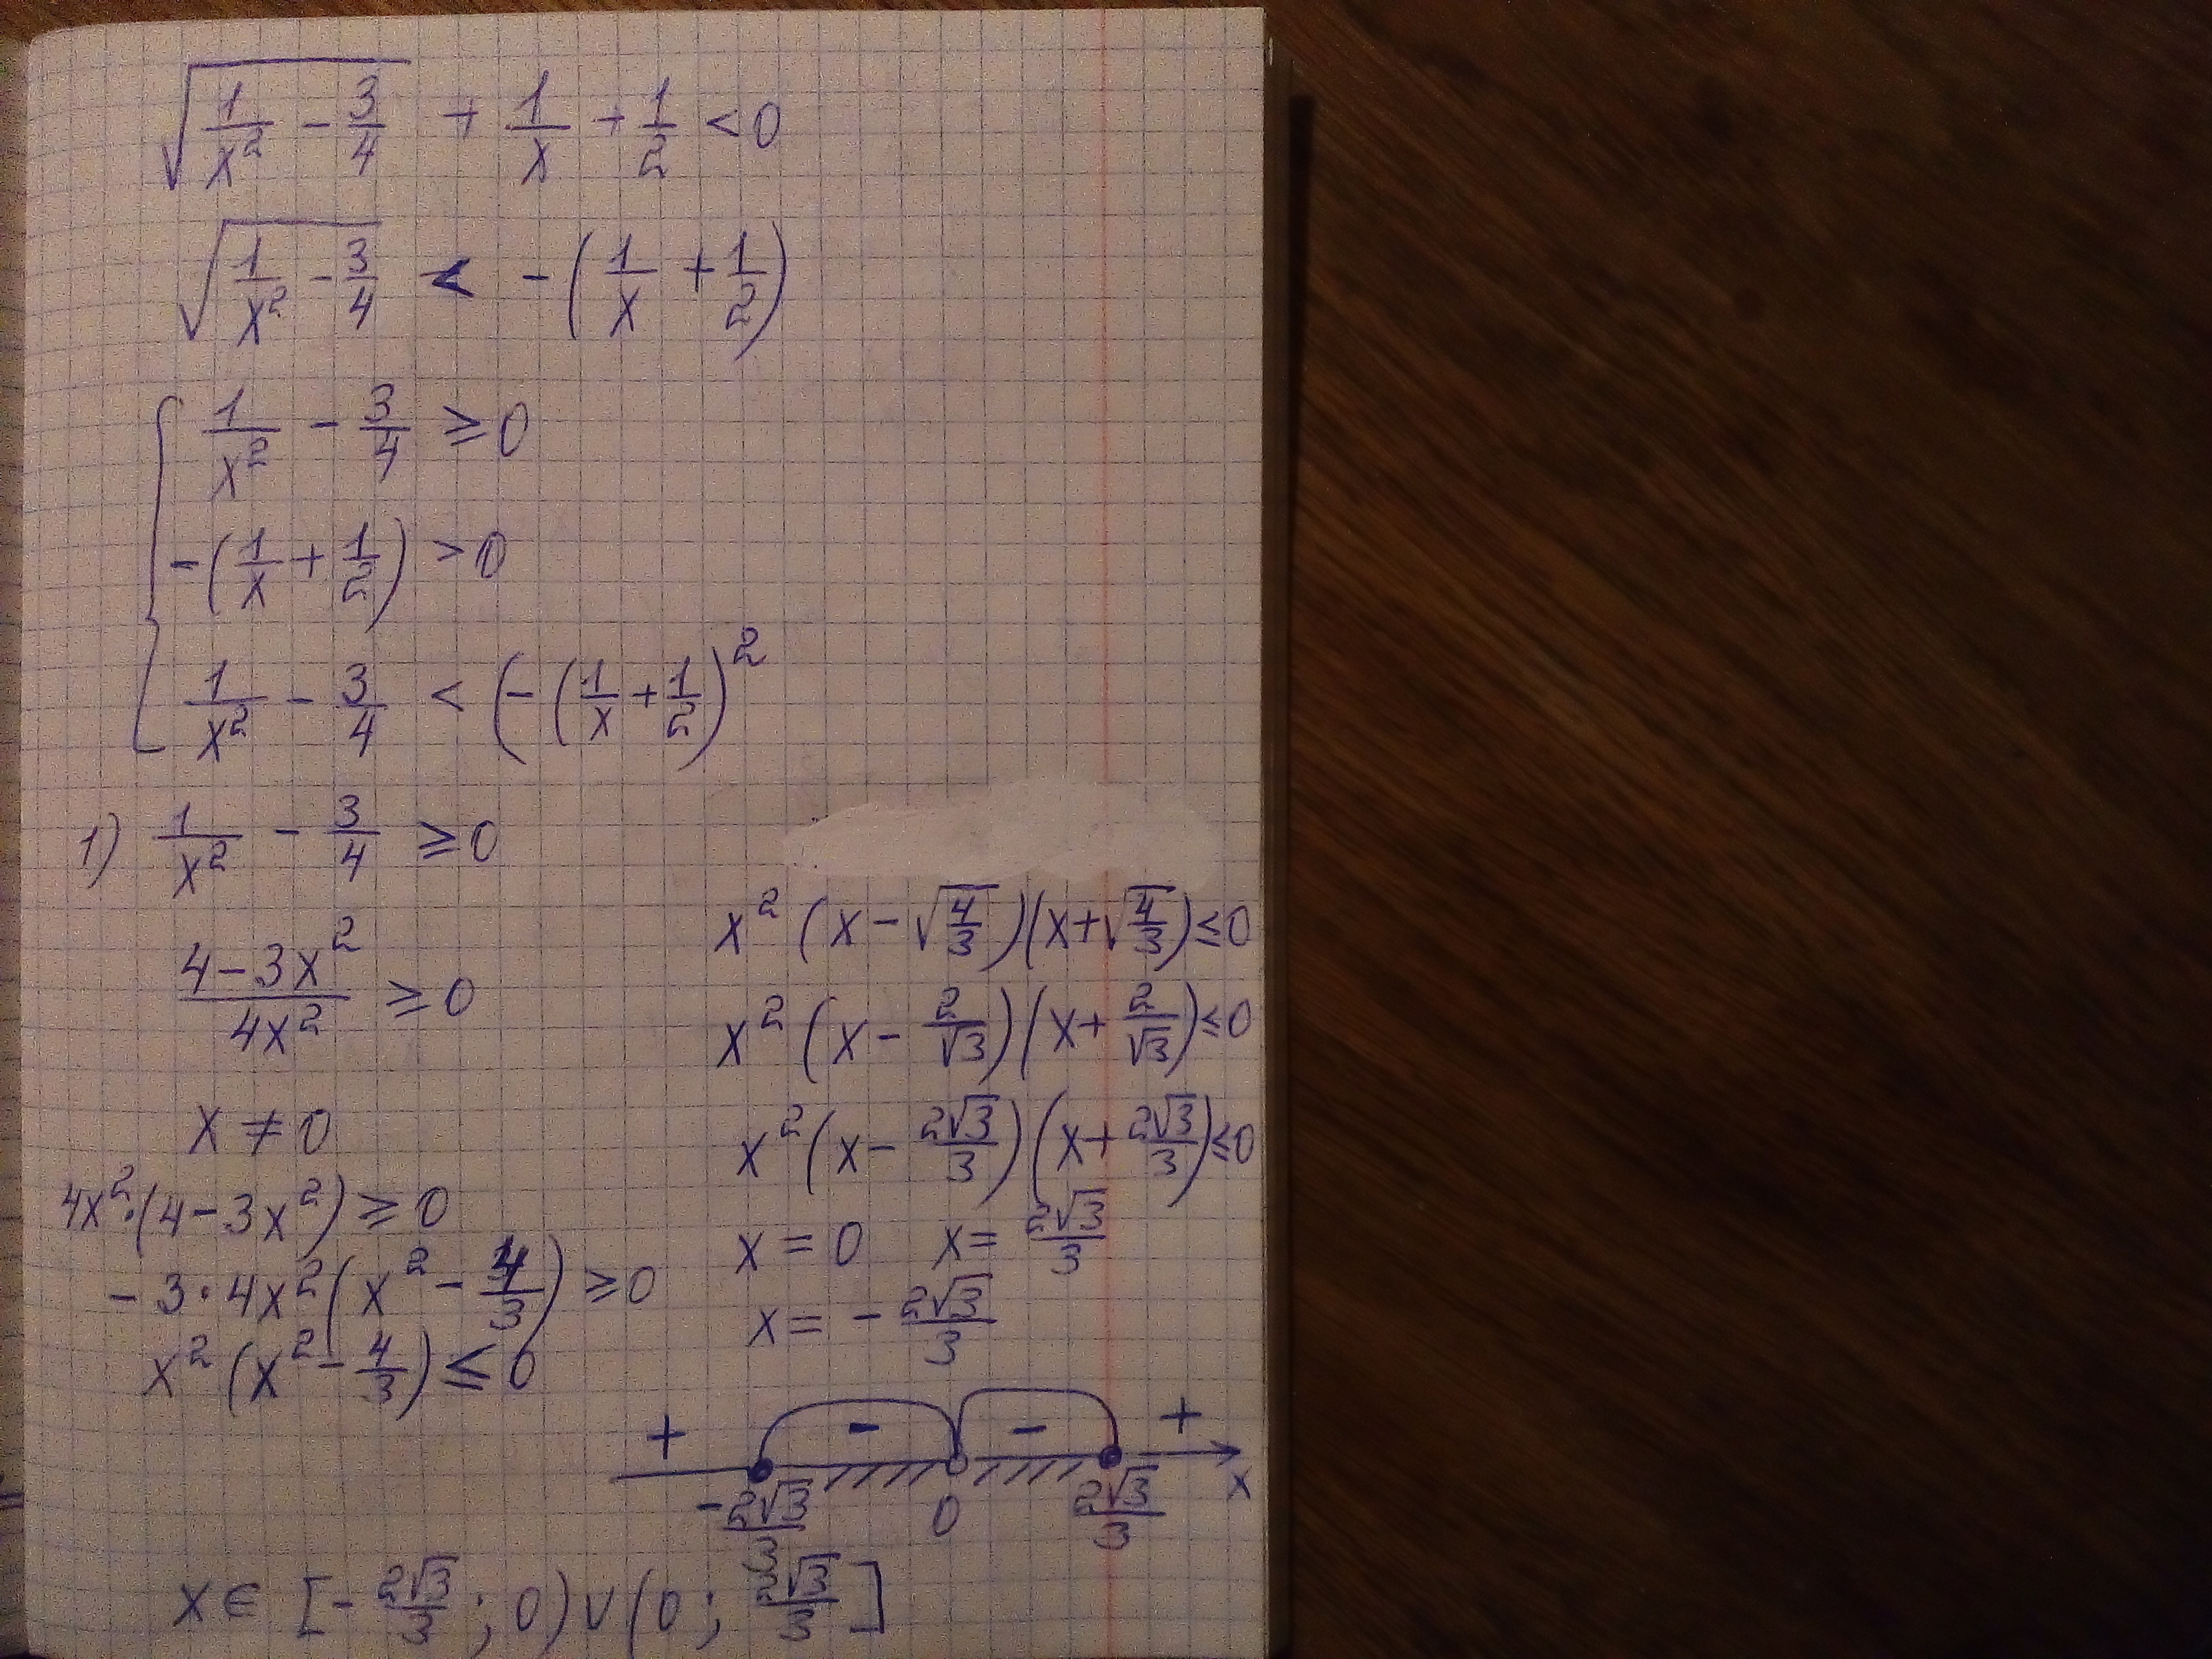 √(1/x² - 3/4) + 1/x + 1/2 < 0
√(1/x² - 3/4) < -(1/x + 1/2)
{ 1/x² - 3/4 ≥ 0
-(1/x + 1/2) > 0
1/x² - 3/4 < (-(1/x + 1/2)²
1) 1/x² - 3/4 ≥ 0
(4 - 3x²)/(4x²) ≥ 0
x ≠ 0
4x²·(4 - 3x²) ≥ 0
-3·4x²(x² - 4/3) ≥ 0
x²(x² - 4/3) ≤ 0
x²(x - √(4/3))(x + √(4/3)) ≤ 0
x²(x - 2/√3)(x + 2/√3) ≤ 0
x²(x - 2√3/3)(x + 2√3/3) ≤ 0
x = 0 x = 2√3/3
x = - 2√3/3
+ - - +
-2√3/3 0 2√3/3 x
x ∈ [- 2√3/3 ; 0) ∪ (0 ; 2√3/3]